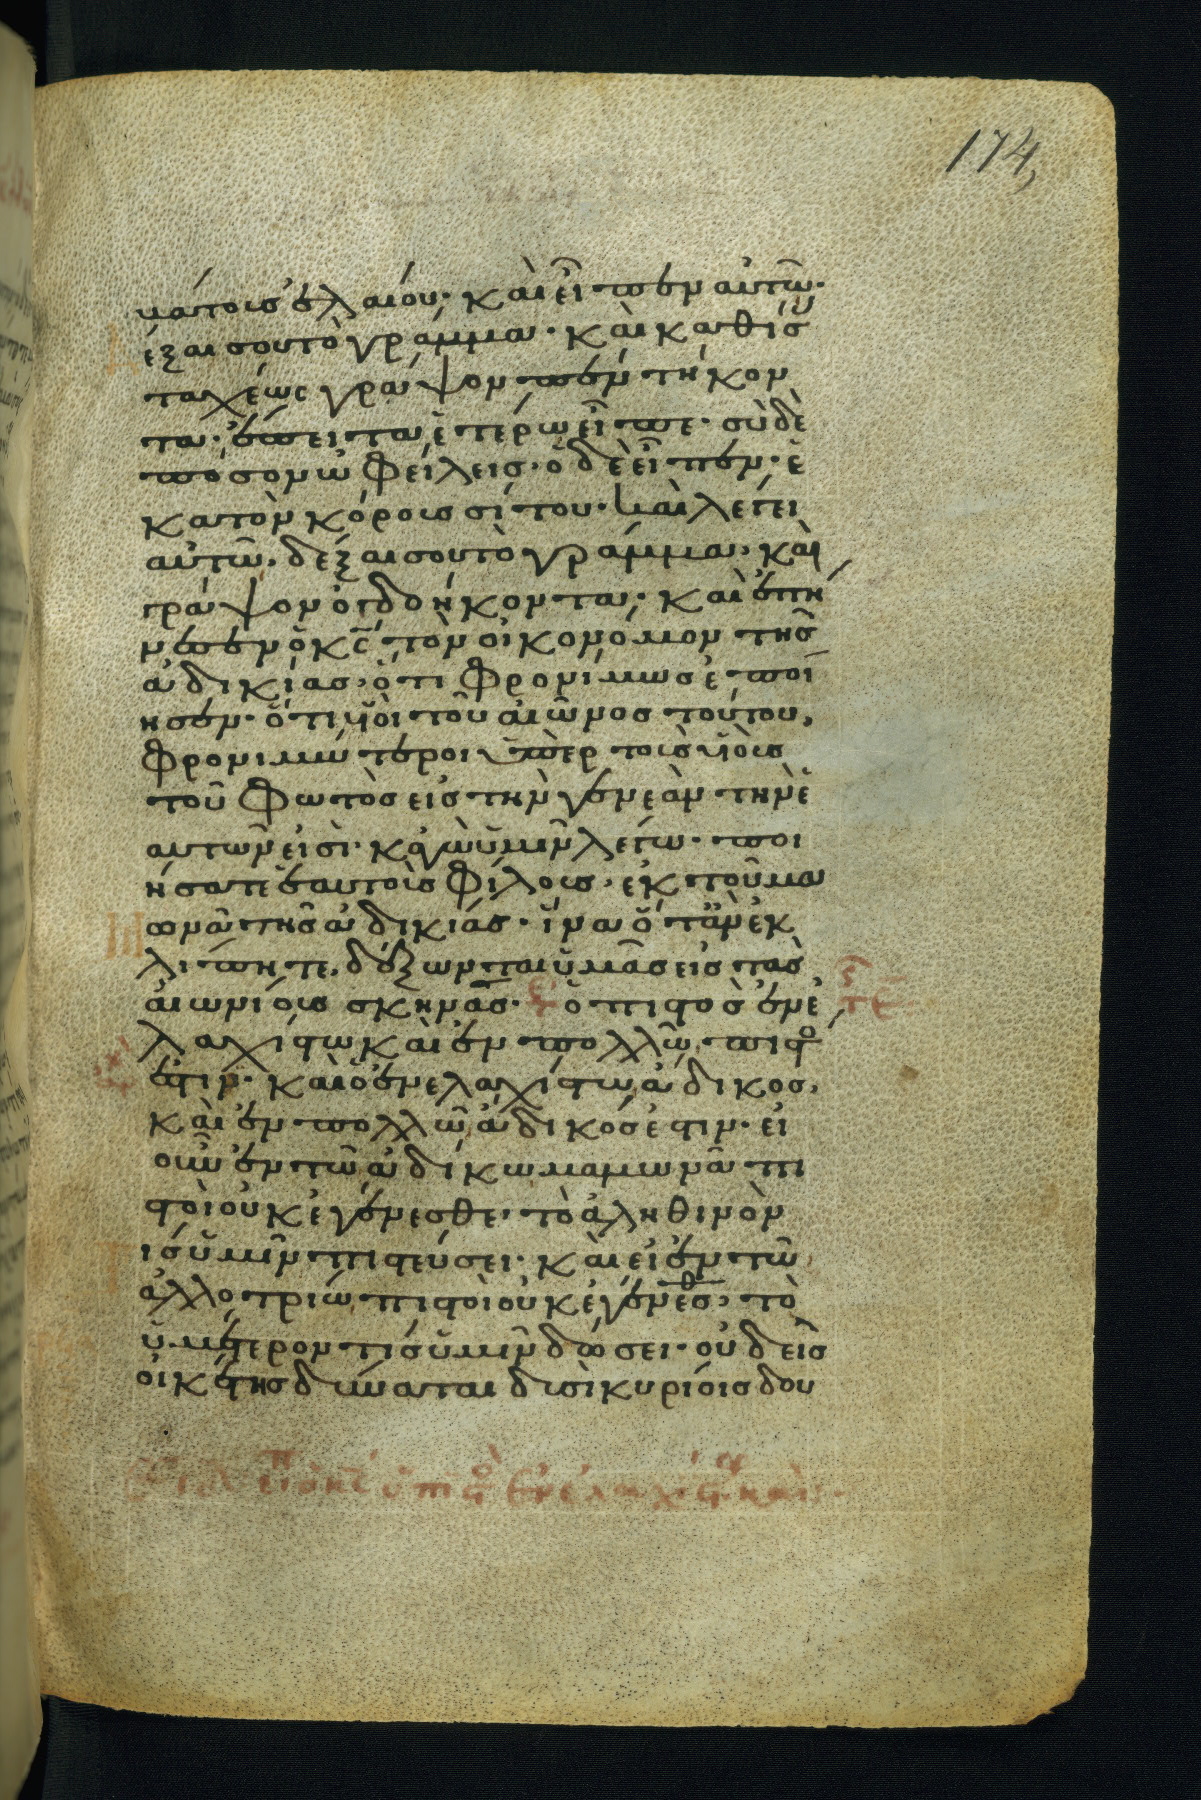 174
μάτοις ἐλαίου· καὶ εἶπεν αὐτῶ·
δέξαι σου τὸ γράμμα· καὶ καθίσ
ταχέως γράψον πεντήκον
τα· ἔπειτα ἑτέρω εἶπε· σὺ δὲ
πόσον ὠφείλεις· ὁ δὲ εἶπεν· ἑ
κατὸν κόρους σίτου· καὶ λέγει
αὐτῶ· δέξαι σου τὸ γράμμα· καὶ
γράψον ὀγδοήκοντα· καὶ ἐπή
νεσεν ὁ κ̅ς̅ τὸν οἰκονόμον τῆς
ἀδικίας· ὅτι φρονίμως ἐποί
ησεν· ὅτι οἱ υἱοὶ τοῦ αἰῶνος τούτου,
φρονιμώτεροι ὑπὲρ τοὺς υἱοὺς
τοῦ φωτὸς εἰς τὴν γενεὰν τὴν ἑ
αυτῶν εἰσὶ· κἀγὼ ὑμῖν λέγω· ποι
ήσατε ἑαυτοῖς φίλους· ἐκ τοῦ μα
ωνᾶ τῆς ἀδικίας· ἵνα ὅταν ἐκ
λίπητε, δέξωνται ὑμᾶς εἰς τὰς
αἰωνίους σκηνάς· ὁ πιστὸς ἐν ἐ
λαχίστω καὶ ἐν πολλῶ πιστό
ἐστιν· καὶ ὁ ἐν ἐλαχίστω ἄδικος,
καὶ ἐν πολλῶ ἄδικός ἐστιν· εἰ
οὖν ἐν τῶ ἀδίκω μαμωνᾶ πι
στοὶ οὐκ ἐγένεσθε· τὸ ἀληθινὸν
τίς ὑμῖν πιστεύσει· καὶ εἰ ἐν τῶ
ἀλλοτρίω πιστοὶ οὐκ ἐγένεσθ· τὸ
ὑμέτερον τίς ὑμῖν δώσει· οὐδεὶς
οἰκέτης δύναται δυσὶ κυρίοις δου